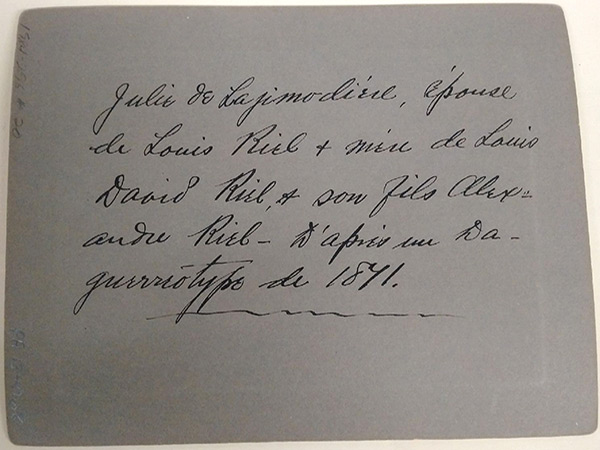 Julie de Lajimodière, Épouse
de Louis Riel + mère de Louis
David Riel, + son fils Alex=
andre Riel – D'après un Da-
guerréotype de 1871.